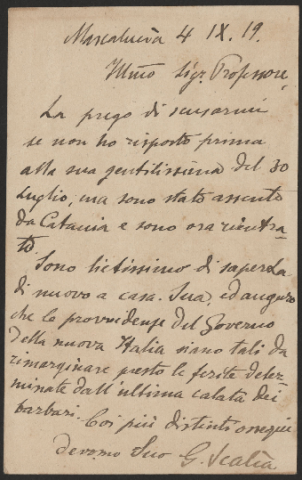 Mascalucia 4 IX. 19.
Illmo Sigr. Professore,
La prego di scusarmi
se non ho risposto prima
alla sua gentilissima del 30
luglio, ma sono stato assente
da Catania e sono ora rientra-
to.
Sono lietissimo di saperLa
di nuovo a casa Sua, ed auguro
che le provvidenze del Governo
della nuova Italia siano tali da
rimarginare presto le ferite deter-
minate dall'ultima calata dei
barbari. Coi più distinti ossequi
devmo Suo G. Scalia